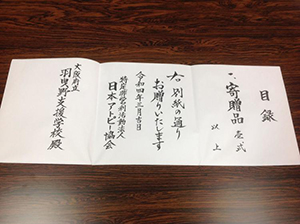 目録
一、寄贈品 壱式
以上
右 別紙の通り
お贈りいたします
令和四年三月吉日
特定非営利活動法人
日本アトピー協会
大阪府立
羽曳野支援学校 殿